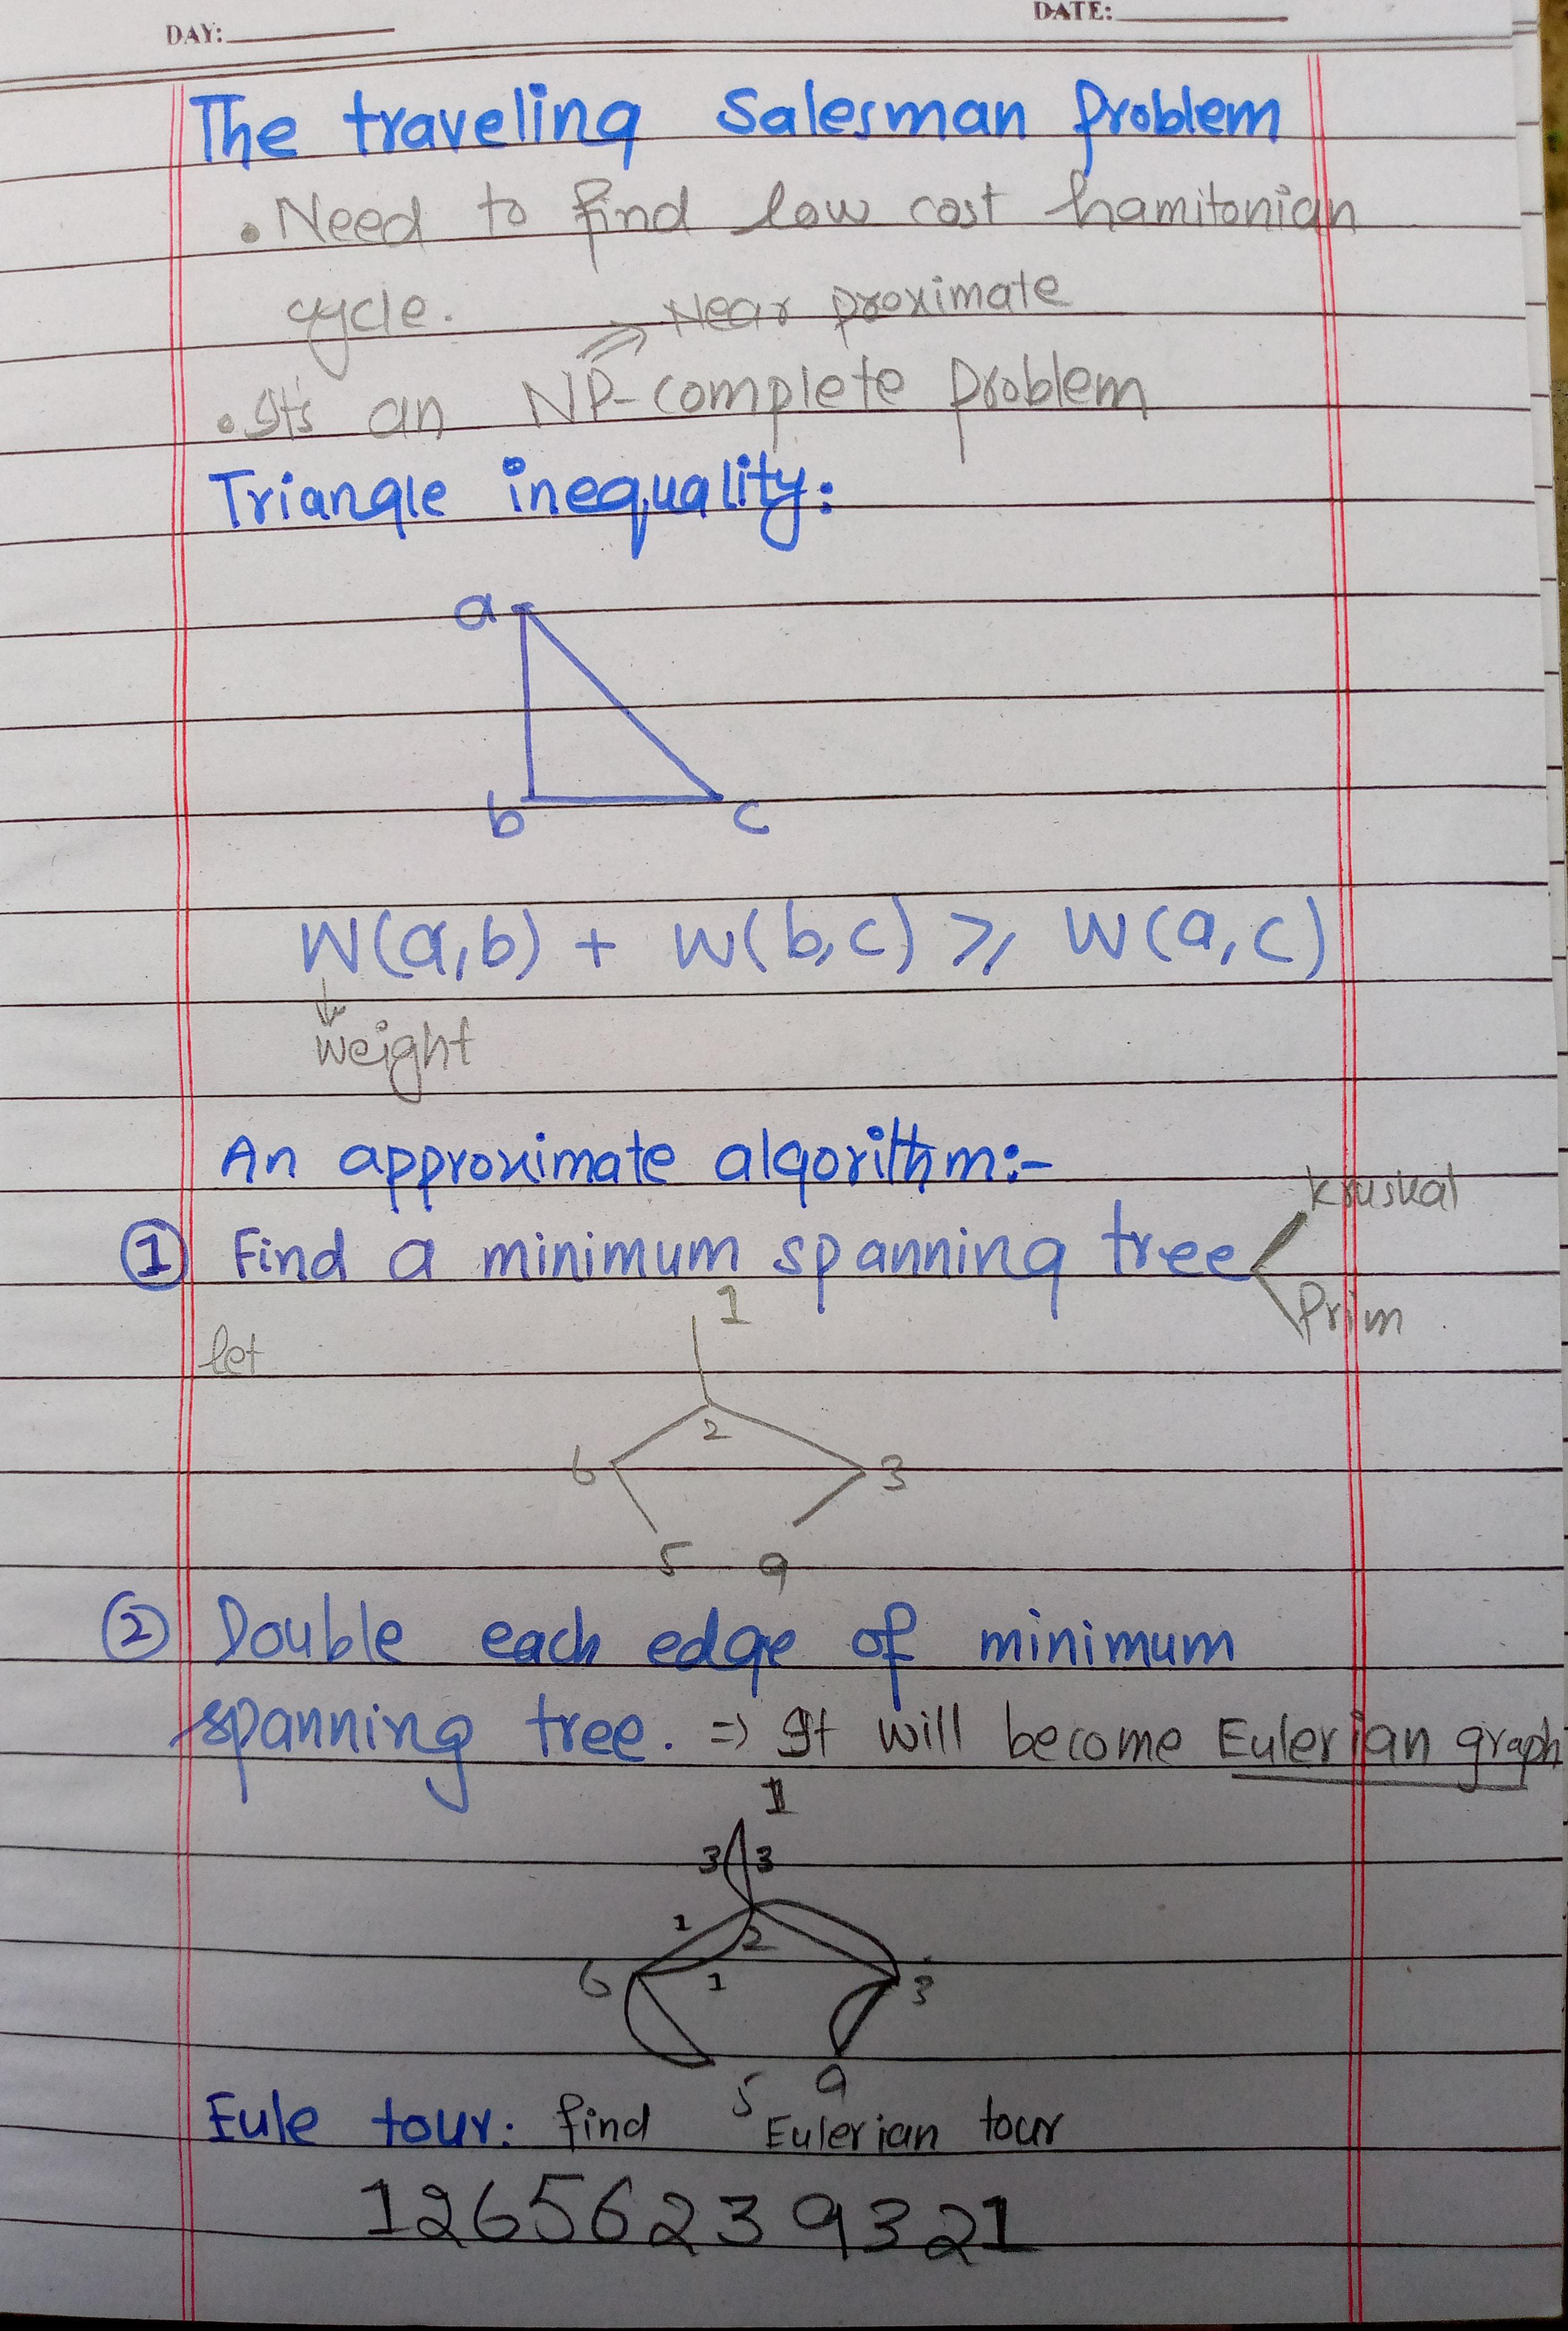 DAY:
DATE:
The traveling Salesman Problem
• Need to find low cost hamitonian
cycle.
⇒ Near proximate
• It's an NP-complete problem
Triangle inequality:
a
b c
W(a,b) + W(b,c) ⩾ W(a,c)
↓
Weight
An approximate algorithm:-
Kruskal
① Find a minimum spanning tree
Prim
let
1
2
6 3
5 9
② Double each edge of minimum
spanning tree. => It will become Eulerian graph
1
3 3
1 2
6 1 3
5 9
Eule tour: find Eulerian tour
1 2 6 5 6 2 3 9 3 2 1